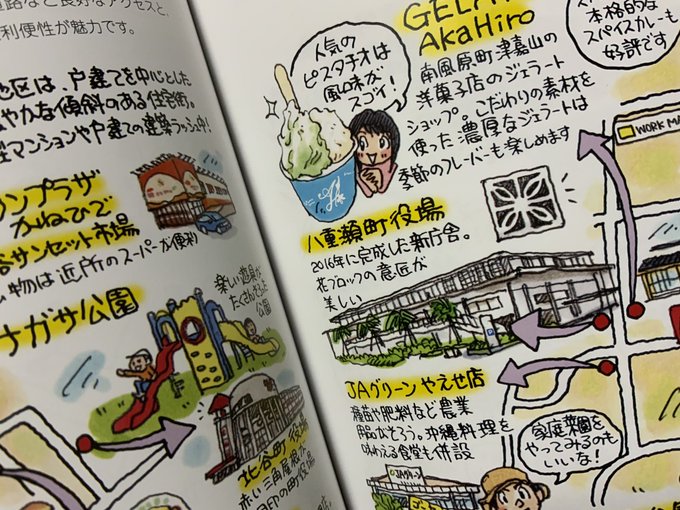 道路など良好なアクセスと、
利便性が魅力です。
地区は、戸建てを中心とした
やかな傾斜のある住宅街。
マンションや戸建ての建築ラッシュ中!
ンプラザ
かねひで
谷サンセット市場
い物は近所のスーパーが便利
ナガサ公園
楽しい遊具が
たくさんそろった
公園
北谷町役場
赤い三角屋根が
目印の町役場
GELA
AkaHiro
人気の
ピスタチオは
風味が
スゴイ!
南風原町津嘉山の
洋菓子店のジェラート
ショップ。こだわりの素材を
使った濃厚なジェラートは
季節のフレーバーも楽しめます
本格的な
スパイスカレーも
好評です
WORK MA
八重瀬町役場
2016年に完成した新庁舎。
花ブロックの意匠が
美しい
JAグリーン やえせ店
種苗や肥料など農業
用品がそろう。沖縄料理を
味わえる食堂も併設
家庭菜園を
やってみるのも
いいな!